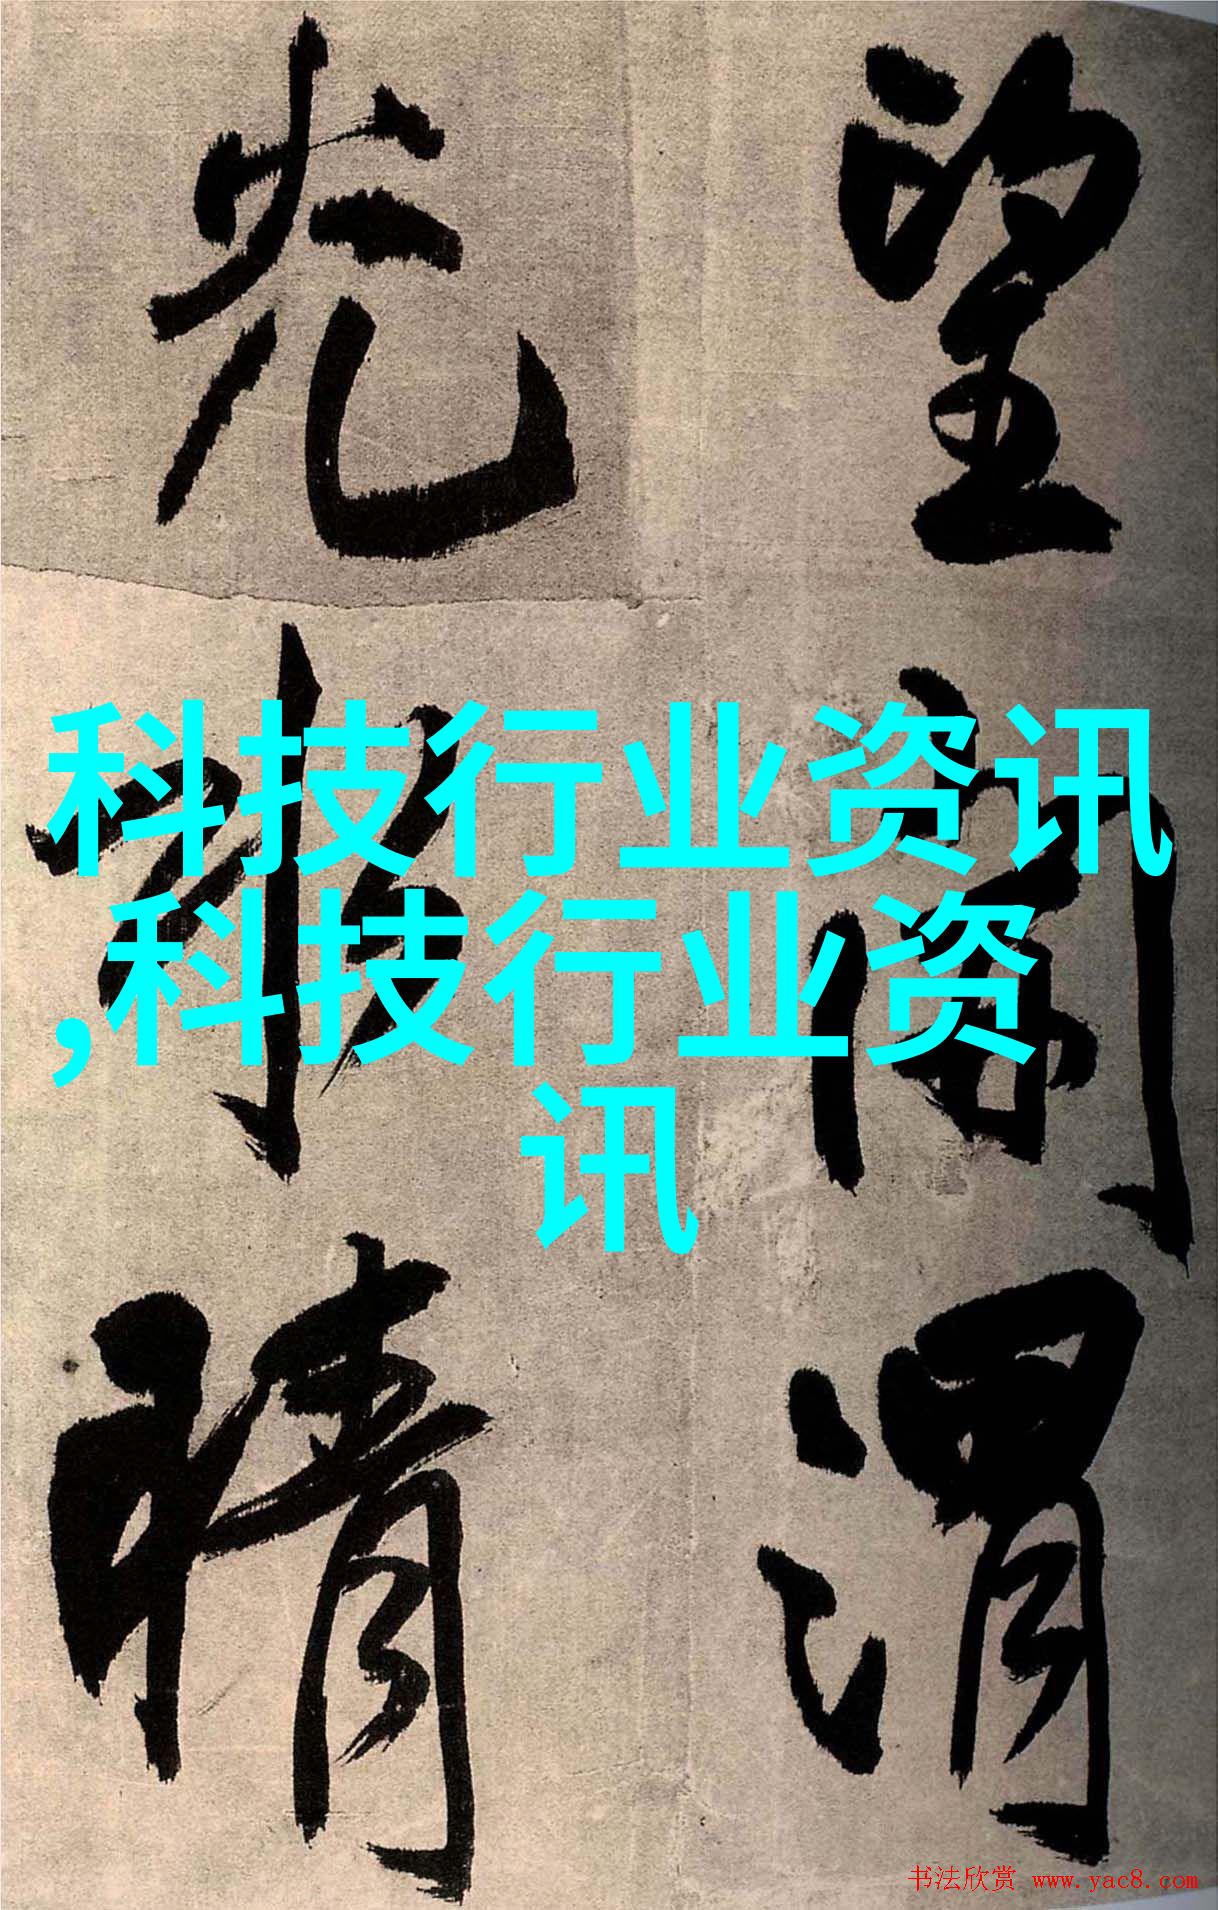 望闌渭
光
科技行业资讯
,科技行业资
讯
书法欣赏 www.yac8.com